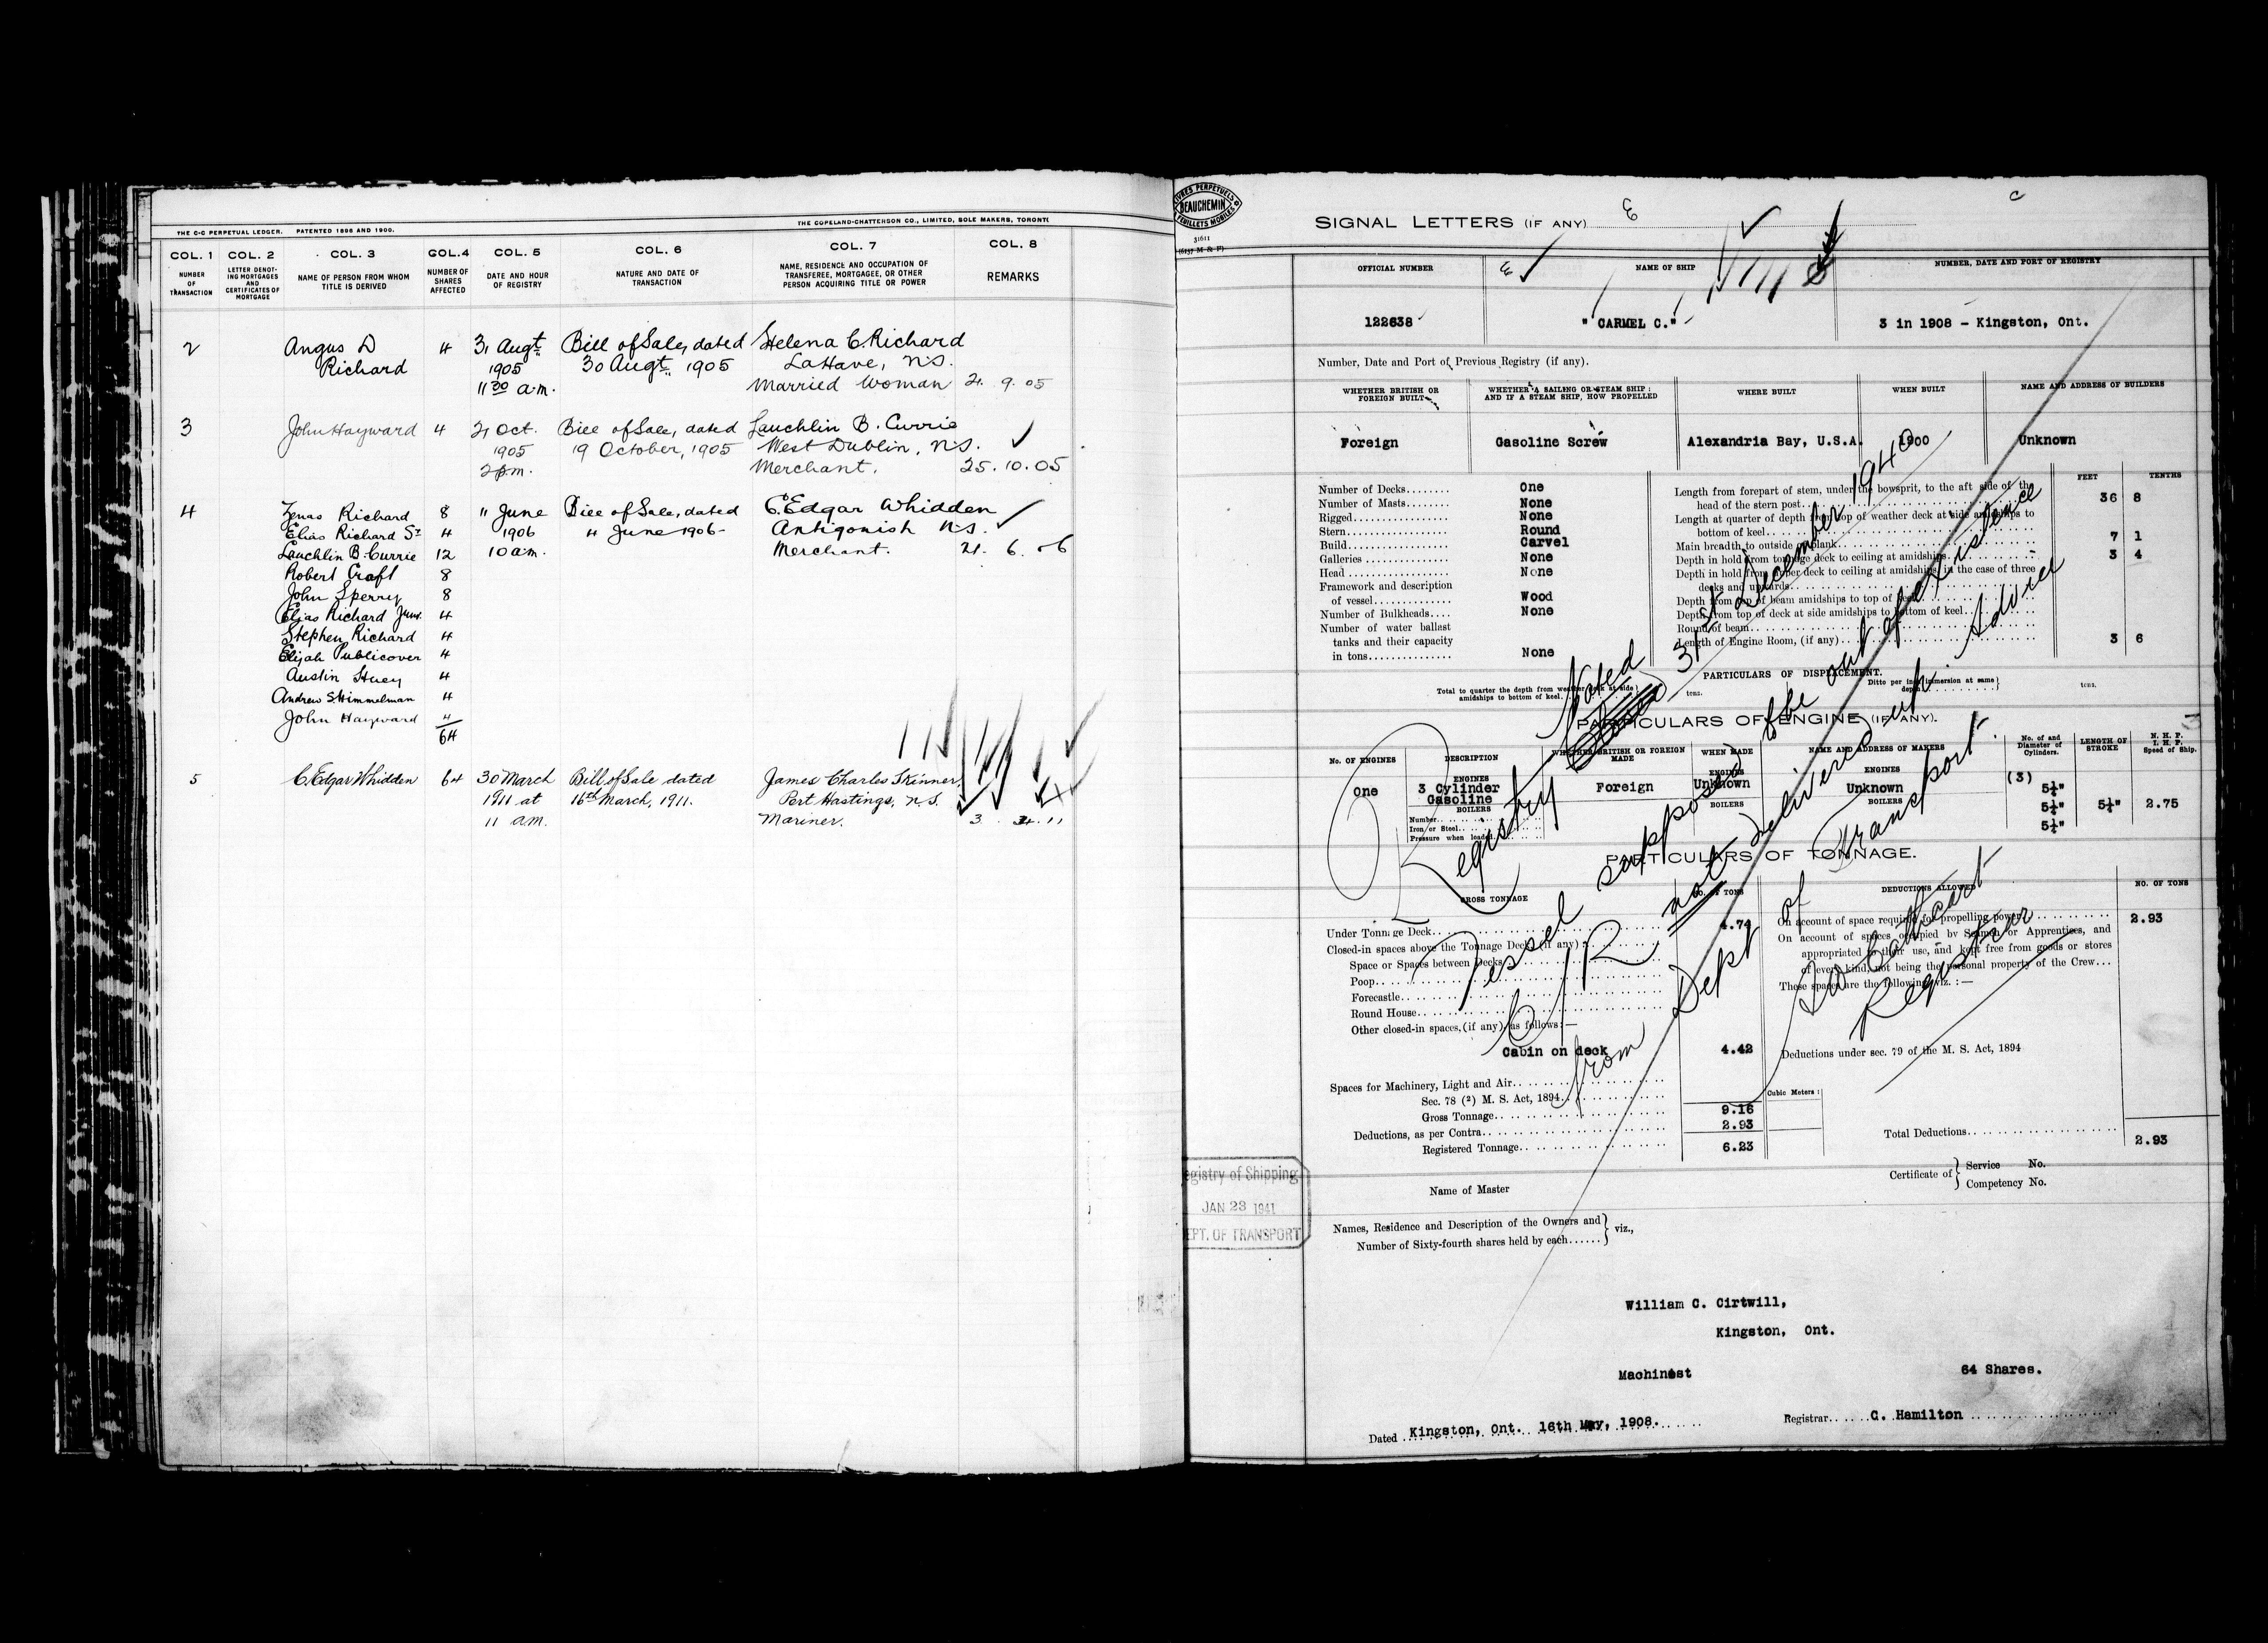 THE C-C PERPETUAL LEDGER. PATENTED 1896 AND 1900.
THE COPELAND-CHATTERSON CO., LIMITED, SOLE MAKERS, TORONTO
COL. 1 COL. 2 COL. 3 COL.4 COL. 5 COL. 6 COL. 7 COL. 8
NUMBER OF TRANSACTION
LETTER DENOTING MORTGAGES AND CERTIFICATES OF MORTGAGE
NAME OF PERSON FROM WHOM TITLE IS DERIVED
NUMBER OF SHARES AFFECTED
DATE AND HOUR OF REGISTRY
NATURE AND DATE OF TRANSACTION
NAME, RESIDENCE AND OCCUPATION OF TRANSFEREE, MORTGAGEE, OR OTHER PERSON ACQUIRING TITLE OR POWER
REMARKS
2 Angus D 4 31 Augt. Bill of Sale, dated Helena C. Richard
Richard 1905 30 Augt. 1905 LaHave, N.S.
11 30 a.m. Married Woman 2. 9. 05
3 John Hayward 4 21 Oct. Bill of Sale, dated Lauchlin B. Currie
1905 19 October, 1905 West Dublin, N.S.
2 p.m. Merchant. 25. 10. 05
4 Zenas Richard 8 11 June Bill of Sale, dated C. Edgar Whidden
Elias Richard Sr 4 1906 4 June 1906 Antigonish N.S.
Lauchlin B. Currie 12 10 a.m. Merchant. 21. 6. 06
Robert Craft 8
John Sperry 8
Elias Richard Junr. 4
Stephen Richard 4
Elijah Publicover 4
Austin Huey 4
Andrew S. Himmelman 4
John Hayward 4
64
5 C. Edgar Whidden 64 30 March Bill of Sale dated James Charles Skinner,
1911 at 16th March, 1911. Port Hastings, N.S.
11 am. Mariner. 3. 4. 11
LIVRES PERPETUELS
BEAUCHEMIN
FEUILLETS MOBILES
31611
(6157 M & F)
SIGNAL LETTERS (IF ANY)
OFFICIAL NUMBER NAME OF SHIP NUMBER, DATE AND PORT OF REGISTRY
122638 " CARMEL C." 3 in 1908 - Kingston, Ont.
Number, Date and Port of Previous Registry (if any).
WHETHER BRITISH OR FOREIGN BUILT
WHETHER A SAILING OR STEAM SHIP: AND IF A STEAM SHIP, HOW PROPELLED
WHERE BUILT
WHEN BUILT
NAME AND ADDRESS OF BUILDERS
Foreign Gasoline Screw Alexandria Bay, U.S.A. 1900 Unknown
FEET TENTHS
Number of Decks One
Number of Masts None
Rigged None
Stern Round
Build Carvel
Galleries None
Head None
Framework and description
of vessel Wood
Number of Bulkheads None
Number of water ballast
tanks and their capacity
in tons None
Length from forepart of stem, under the bowsprit, to the aft side of the
head of the stern post 36 8
Length at quarter of depth from top of weather deck at side amidships to
bottom of keel
Main breadth to outside of plank 7 1
Depth in hold from tonnage deck to ceiling at amidships 3 4
Depth in hold from upper deck to ceiling at amidships, in the case of three
decks and upwards
Depth from top of beam amidships to top of keel
Depth from top of deck at side amidships to bottom of keel
Round of beam
Length of Engine Room, (if any) 3 6
PARTICULARS OF DISPLACEMENT.
Total to quarter the depth from weather deck at side amidships to bottom of keel tons.
Ditto per inch immersion at same depth tons.
PARTICULARS OF ENGINE (IF ANY).
No. OF ENGINES DESCRIPTION WHETHER BRITISH OR FOREIGN MADE WHEN MADE NAME AND ADDRESS OF MAKERS No. of and Diameter of Cylinders. LENGTH OF STROKE N. H. P. I. H. P. Speed of Ship.
ENGINES ENGINES ENGINES
One 3 Cylinder Foreign Unknown Unknown (3) 5¼"
Gasoline
BOILERS BOILERS BOILERS 5¼" 5¼" 2.75
5¼"
Number
Iron or Steel
Pressure when loaded
PARTICULARS OF TONNAGE.
GROSS TONNAGE No. OF TONS DEDUCTIONS ALLOWED No. OF TONS
Under Tonnage Deck 4.74
Closed-in spaces above the Tonnage Deck (if any)
Space or Spaces between Decks
Poop
Forecastle
Round House
Other closed-in spaces, (if any) as follows:—
Cabin on deck 4.42
Spaces for Machinery, Light and Air
Sec. 78 (2) M. S. Act, 1894
Gross Tonnage 9.16
Deductions, as per Contra 2.93
Registered Tonnage 6.23
On account of space required for propelling power 2.93
On account of spaces occupied by Seamen or Apprentices, and
appropriated to their use, and kept free from goods or stores
of every kind, not being the personal property of the Crew
These spaces are the following, viz.:—
Deductions under sec. 79 of the M. S. Act, 1894
Cubic Meters:
Total Deductions 2.93
Registry Noted 31st December 1940
Vessel supposed to be out of existence
C/R not delivered up. Advice
from Dept of Transport.
Registrar
Name of Master
Certificate of Service No.
Competency No.
Registry of Shipping
JAN 23 1941
DEPT. OF TRANSPORT
Names, Residence and Description of the Owners and
Number of Sixty-fourth shares held by each viz.,
William C. Cirtwill,
Kingston, Ont.
Machinist 64 Shares.
Dated Kingston, Ont. 16th May, 1908.
Registrar C. Hamilton